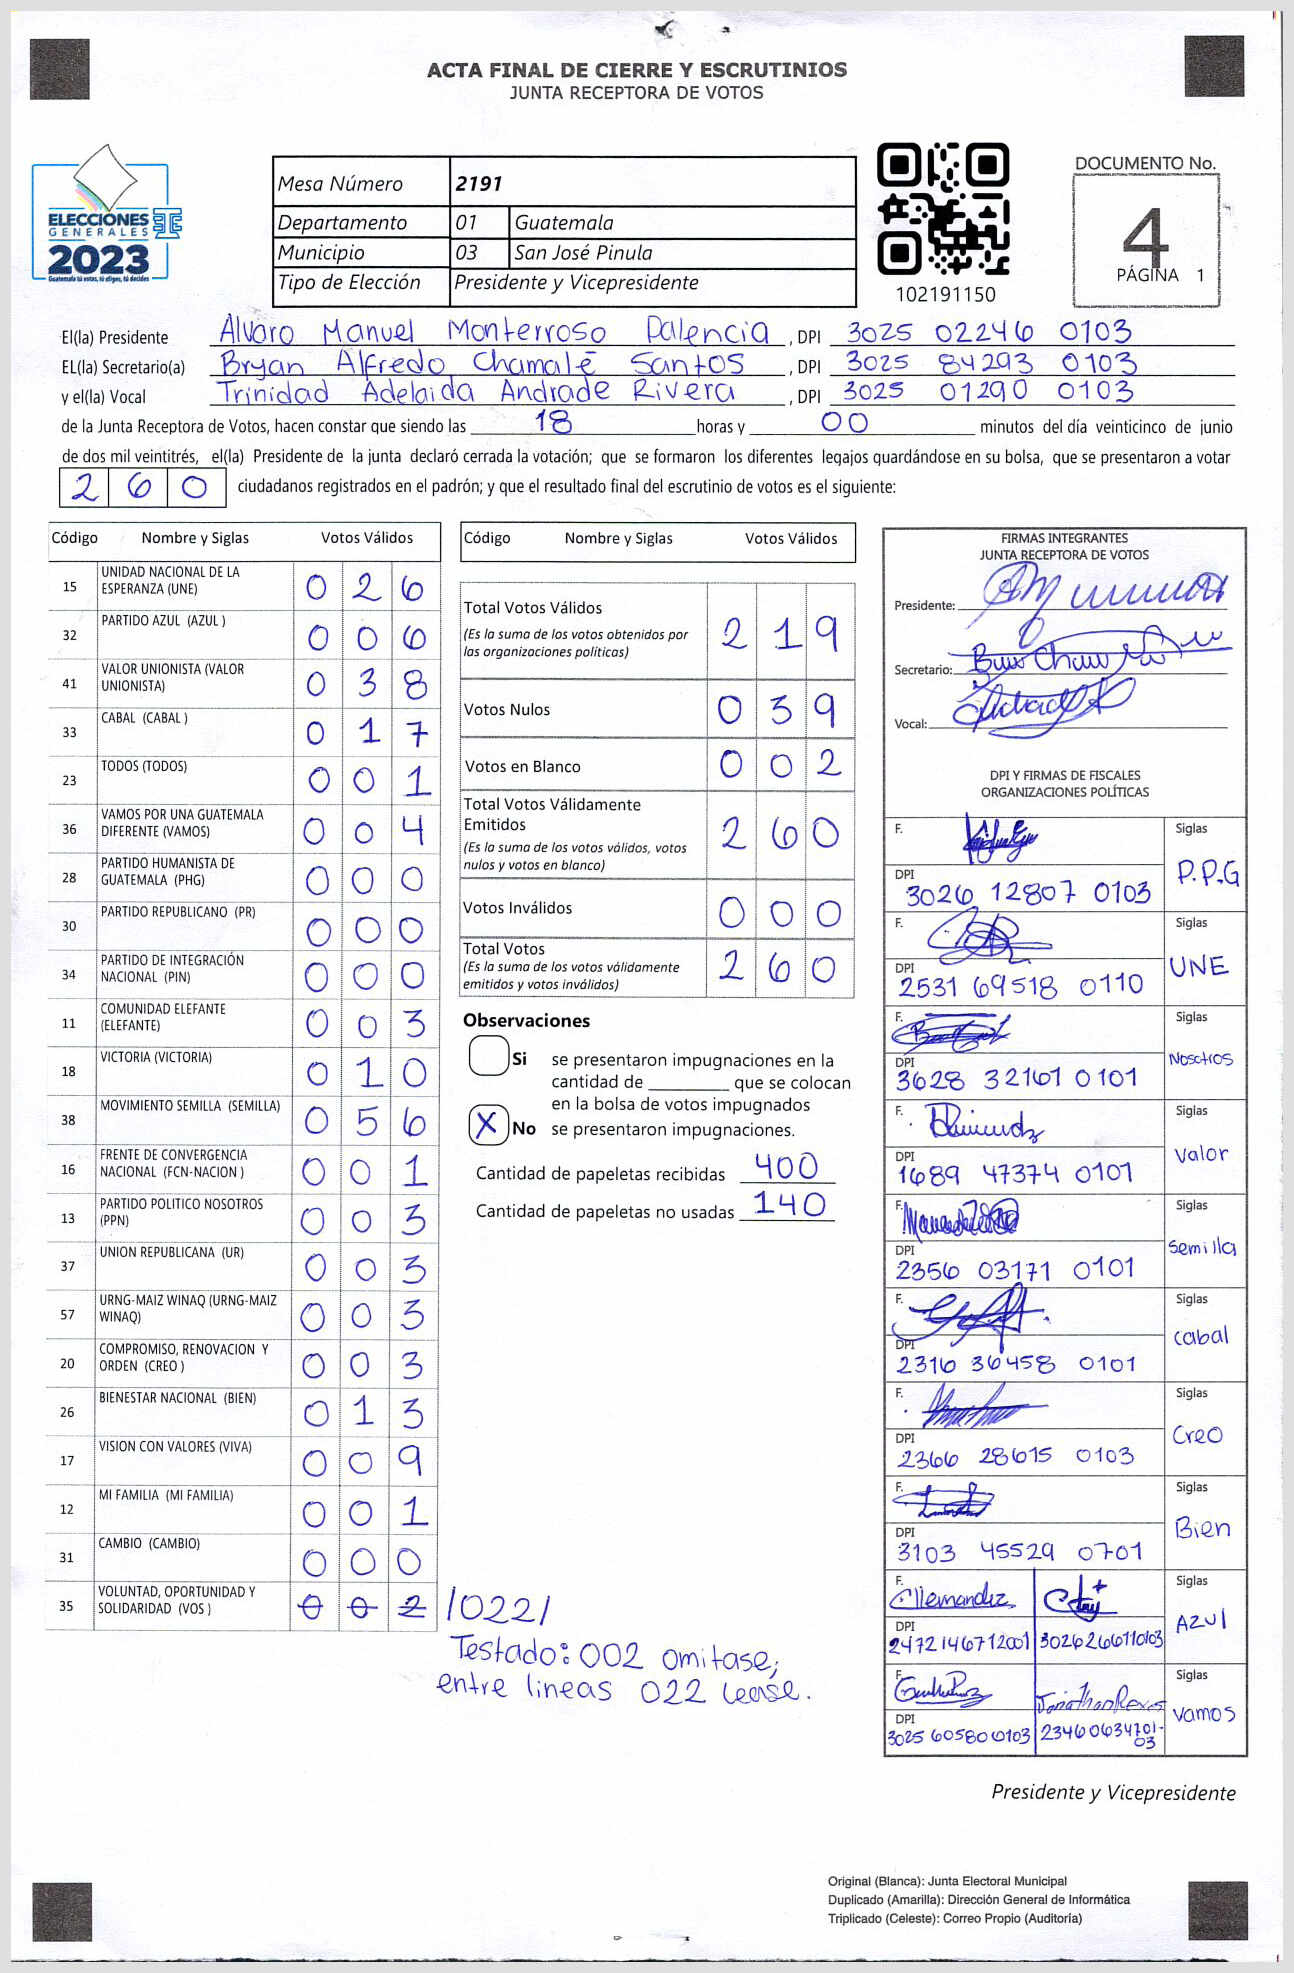 ACTA FINAL DE CIERRE Y ESCRUTINIOS
JUNTA RECEPTORA DE VOTOS
ELECCIONES
GENERALES
2023
Guatemala tú votas, tú eliges, tú decides
Mesa Número 2191
Departamento 01 Guatemala
Municipio 03 San José Pinula
Tipo de Elección Presidente y Vicepresidente
102191150
DOCUMENTO No.
4
PÁGINA 1
El(la) Presidente Alvaro Manuel Monterroso Palencia, DPI 3025 02246 0103
EL(la) Secretario(a) Bryan Alfredo Chamalé Santos, DPI 3025 84293 0103
y el(la) Vocal Trinidad Adelaida Andrade Rivera, DPI 3025 01290 0103
de la Junta Receptora de Votos, hacen constar que siendo las 18 horas y 00 minutos del día veinticinco de junio
de dos mil veintitrés, el(la) Presidente de la junta declaró cerrada la votación; que se formaron los diferentes legajos quardándose en su bolsa, que se presentaron a votar
2 6 0 ciudadanos registrados en el padrón; y que el resultado final del escrutinio de votos es el siguiente:
Código Nombre y Siglas Votos Válidos
15 UNIDAD NACIONAL DE LA ESPERANZA (UNE) 0 2 6
32 PARTIDO AZUL (AZUL ) 0 0 6
41 VALOR UNIONISTA (VALOR UNIONISTA) 0 3 8
33 CABAL (CABAL ) 0 1 7
23 TODOS (TODOS) 0 0 1
36 VAMOS POR UNA GUATEMALA DIFERENTE (VAMOS) 0 0 4
28 PARTIDO HUMANISTA DE GUATEMALA (PHG) 0 0 0
30 PARTIDO REPUBLICANO (PR) 0 0 0
34 PARTIDO DE INTEGRACIÓN NACIONAL (PIN) 0 0 0
11 COMUNIDAD ELEFANTE (ELEFANTE) 0 0 3
18 VICTORIA (VICTORIA) 0 1 0
38 MOVIMIENTO SEMILLA (SEMILLA) 0 5 6
16 FRENTE DE CONVERGENCIA NACIONAL (FCN-NACION ) 0 0 1
13 PARTIDO POLITICO NOSOTROS (PPN) 0 0 3
37 UNION REPUBLICANA (UR) 0 0 3
57 URNG-MAIZ WINAQ (URNG-MAIZ WINAQ) 0 0 3
20 COMPROMISO, RENOVACION Y ORDEN (CREO ) 0 0 3
26 BIENESTAR NACIONAL (BIEN) 0 1 3
17 VISION CON VALORES (VIVA) 0 0 9
12 MI FAMILIA (MI FAMILIA) 0 0 1
31 CAMBIO (CAMBIO) 0 0 0
35 VOLUNTAD, OPORTUNIDAD Y SOLIDARIDAD (VOS ) 0 0 2 /022/
Testado: 002 omitase;
entre lineas 022 Lease.
Código Nombre y Siglas Votos Válidos
Total Votos Válidos 2 1 9
(Es la suma de los votos obtenidos por
las organizaciones políticas)
Votos Nulos 0 3 9
Votos en Blanco 0 0 2
Total Votos Válidamente
Emitidos 2 6 0
(Es la suma de los votos válidos, votos
nulos y votos en blanco)
Votos Inválidos 0 0 0
Total Votos 2 6 0
(Es la suma de los votos válidamente
emitidos y votos inválidos)
Observaciones
Si se presentaron impugnaciones en la
cantidad de ________ que se colocan
en la bolsa de votos impugnados
X No se presentaron impugnaciones.
Cantidad de papeletas recibidas 400
Cantidad de papeletas no usadas 140
FIRMAS INTEGRANTES
JUNTA RECEPTORA DE VOTOS
Presidente:
Secretario:
Vocal:
DPI Y FIRMAS DE FISCALES
ORGANIZACIONES POLÍTICAS
F. Siglas
P.P.G
DPI
3026 12807 0103
F. Siglas
UNE
DPI
2531 69518 0110
F. Siglas
Nosotros
DPI
3628 32161 0101
F. Siglas
Valor
DPI
1689 47374 0101
F. Siglas
Semilla
DPI
2356 03171 0101
F. Siglas
cabal
DPI
2316 36458 0101
F. Siglas
Creo
DPI
2366 28615 0103
F. Siglas
Bien
DPI
3103 45529 0701
F. Siglas
CHernandez
AZUl
DPI
2472146712001 3026266110103
F. Siglas
Jonathan Reyes
Vamos
DPI
3025 60580 0103 2346063470103
Presidente y Vicepresidente
Original (Blanca): Junta Electoral Municipal
Duplicado (Amarilla): Dirección General de Informática
Triplicado (Celeste): Correo Propio (Auditoría)